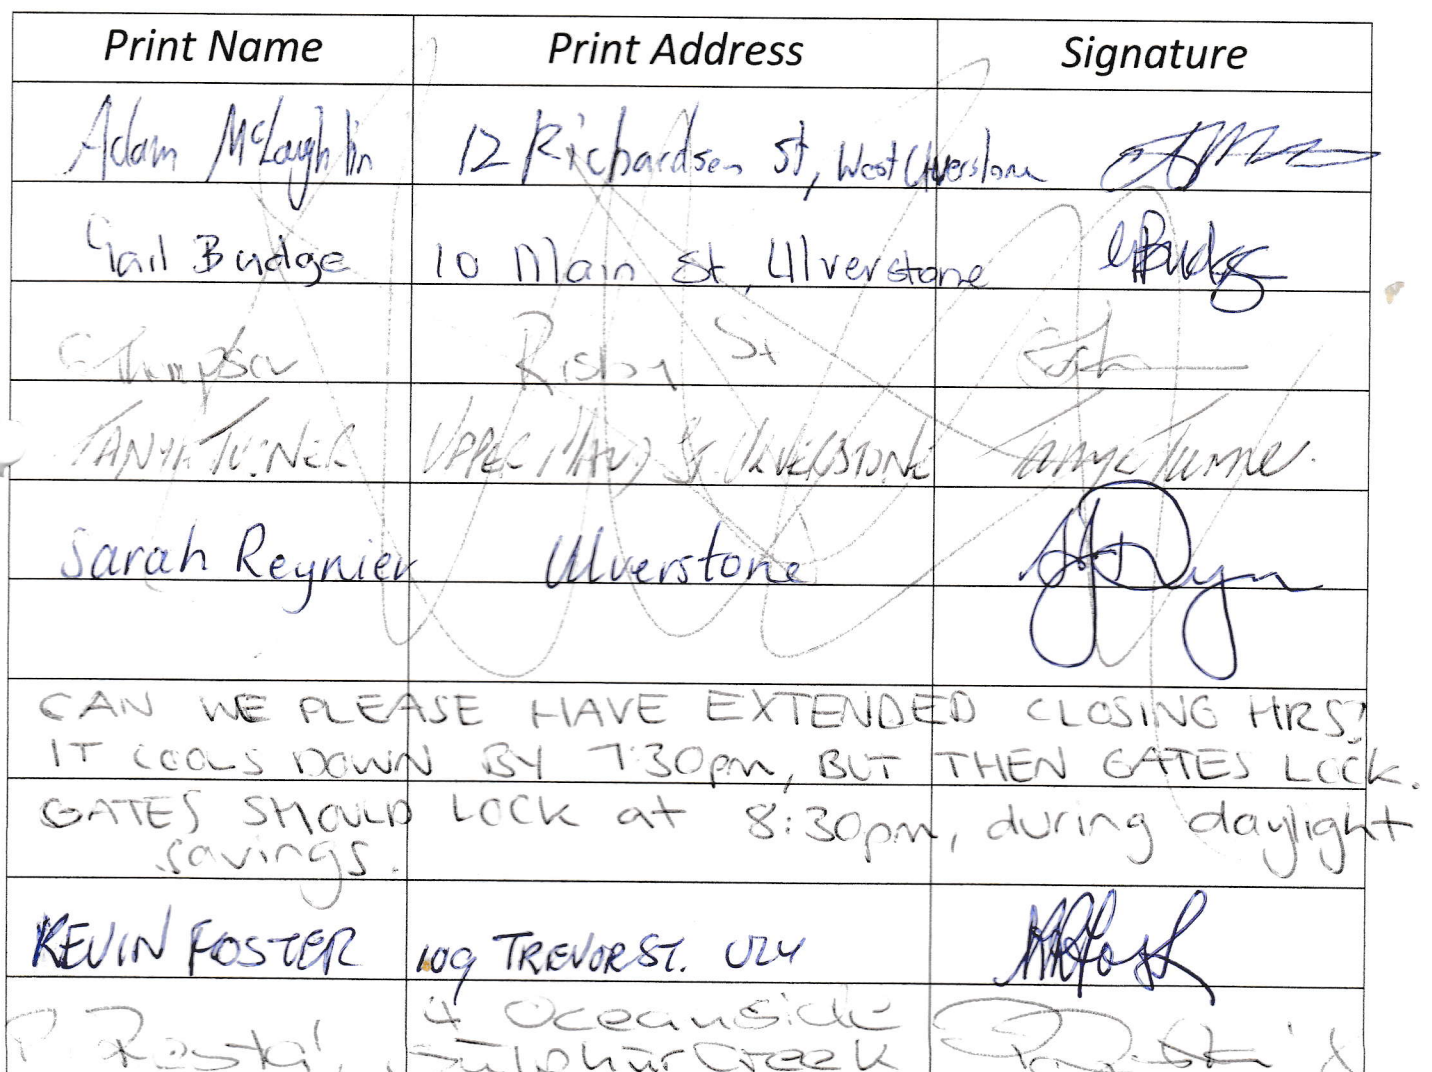 Print Name Print Address Signature
Adam McLaughlin 12 Richardson St, West Ulverstone
Gail Budge 10 Main St, Ulverstone GBudge
G Thompson Risby St
TANYA TURNER UPPER MAUD St ULVERSTONE Tanya Turner.
Sarah Reynier Ulverstone
CAN WE PLEASE HAVE EXTENDED CLOSING HRS?
IT COOLS DOWN BY 7:30pm, BUT THEN GATES LOCK.
GATES SHOULD LOCK at 8:30pm, during daylight
savings.
KEVIN FOSTER 109 TREVOR ST. ULV
4 Oceanside
P. Sulphur Creek